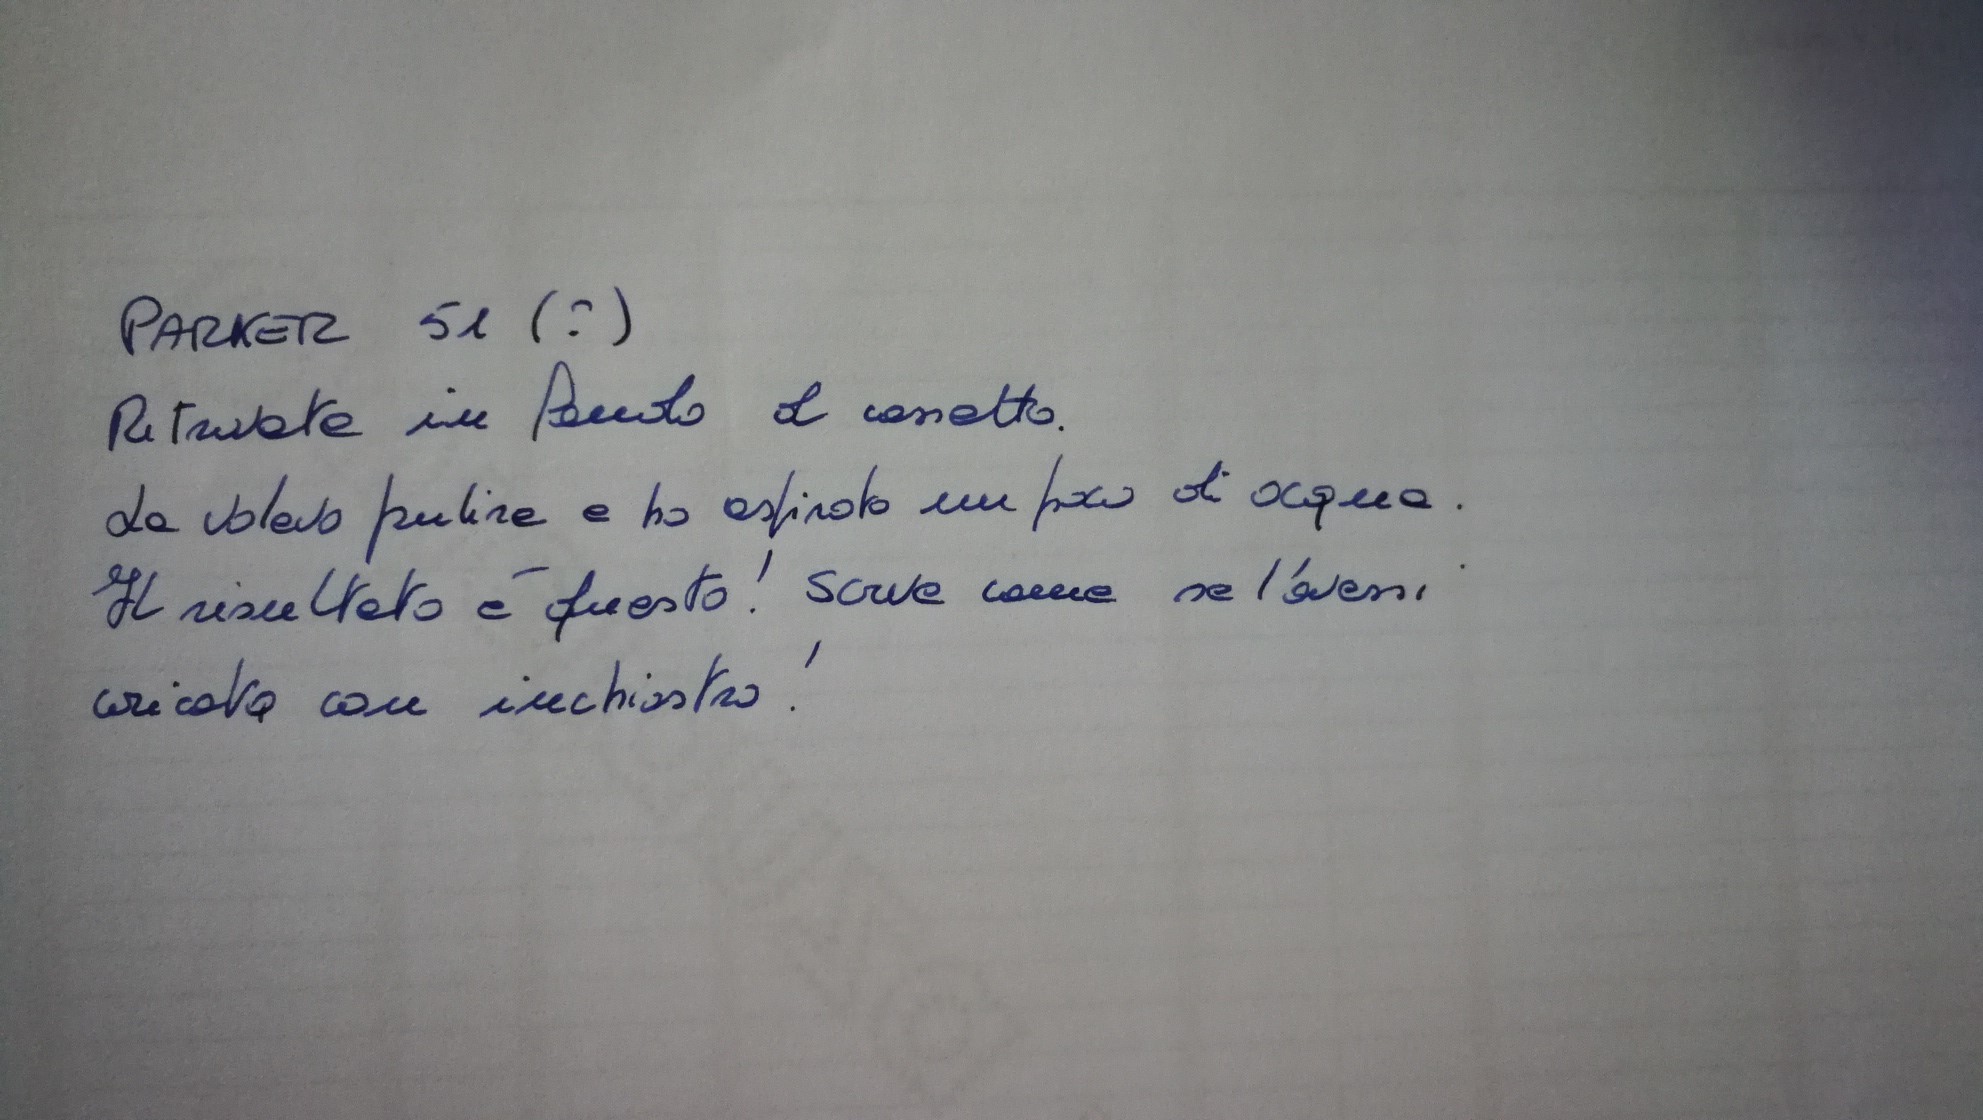 PARKER 51 (?)
Ritrovata in fondo al cassetto.
La volevo pulire e ho aspirato un poco di acqua.
Il risultato è questo! Scrive come se l'avessi
caricata con inchiostro!